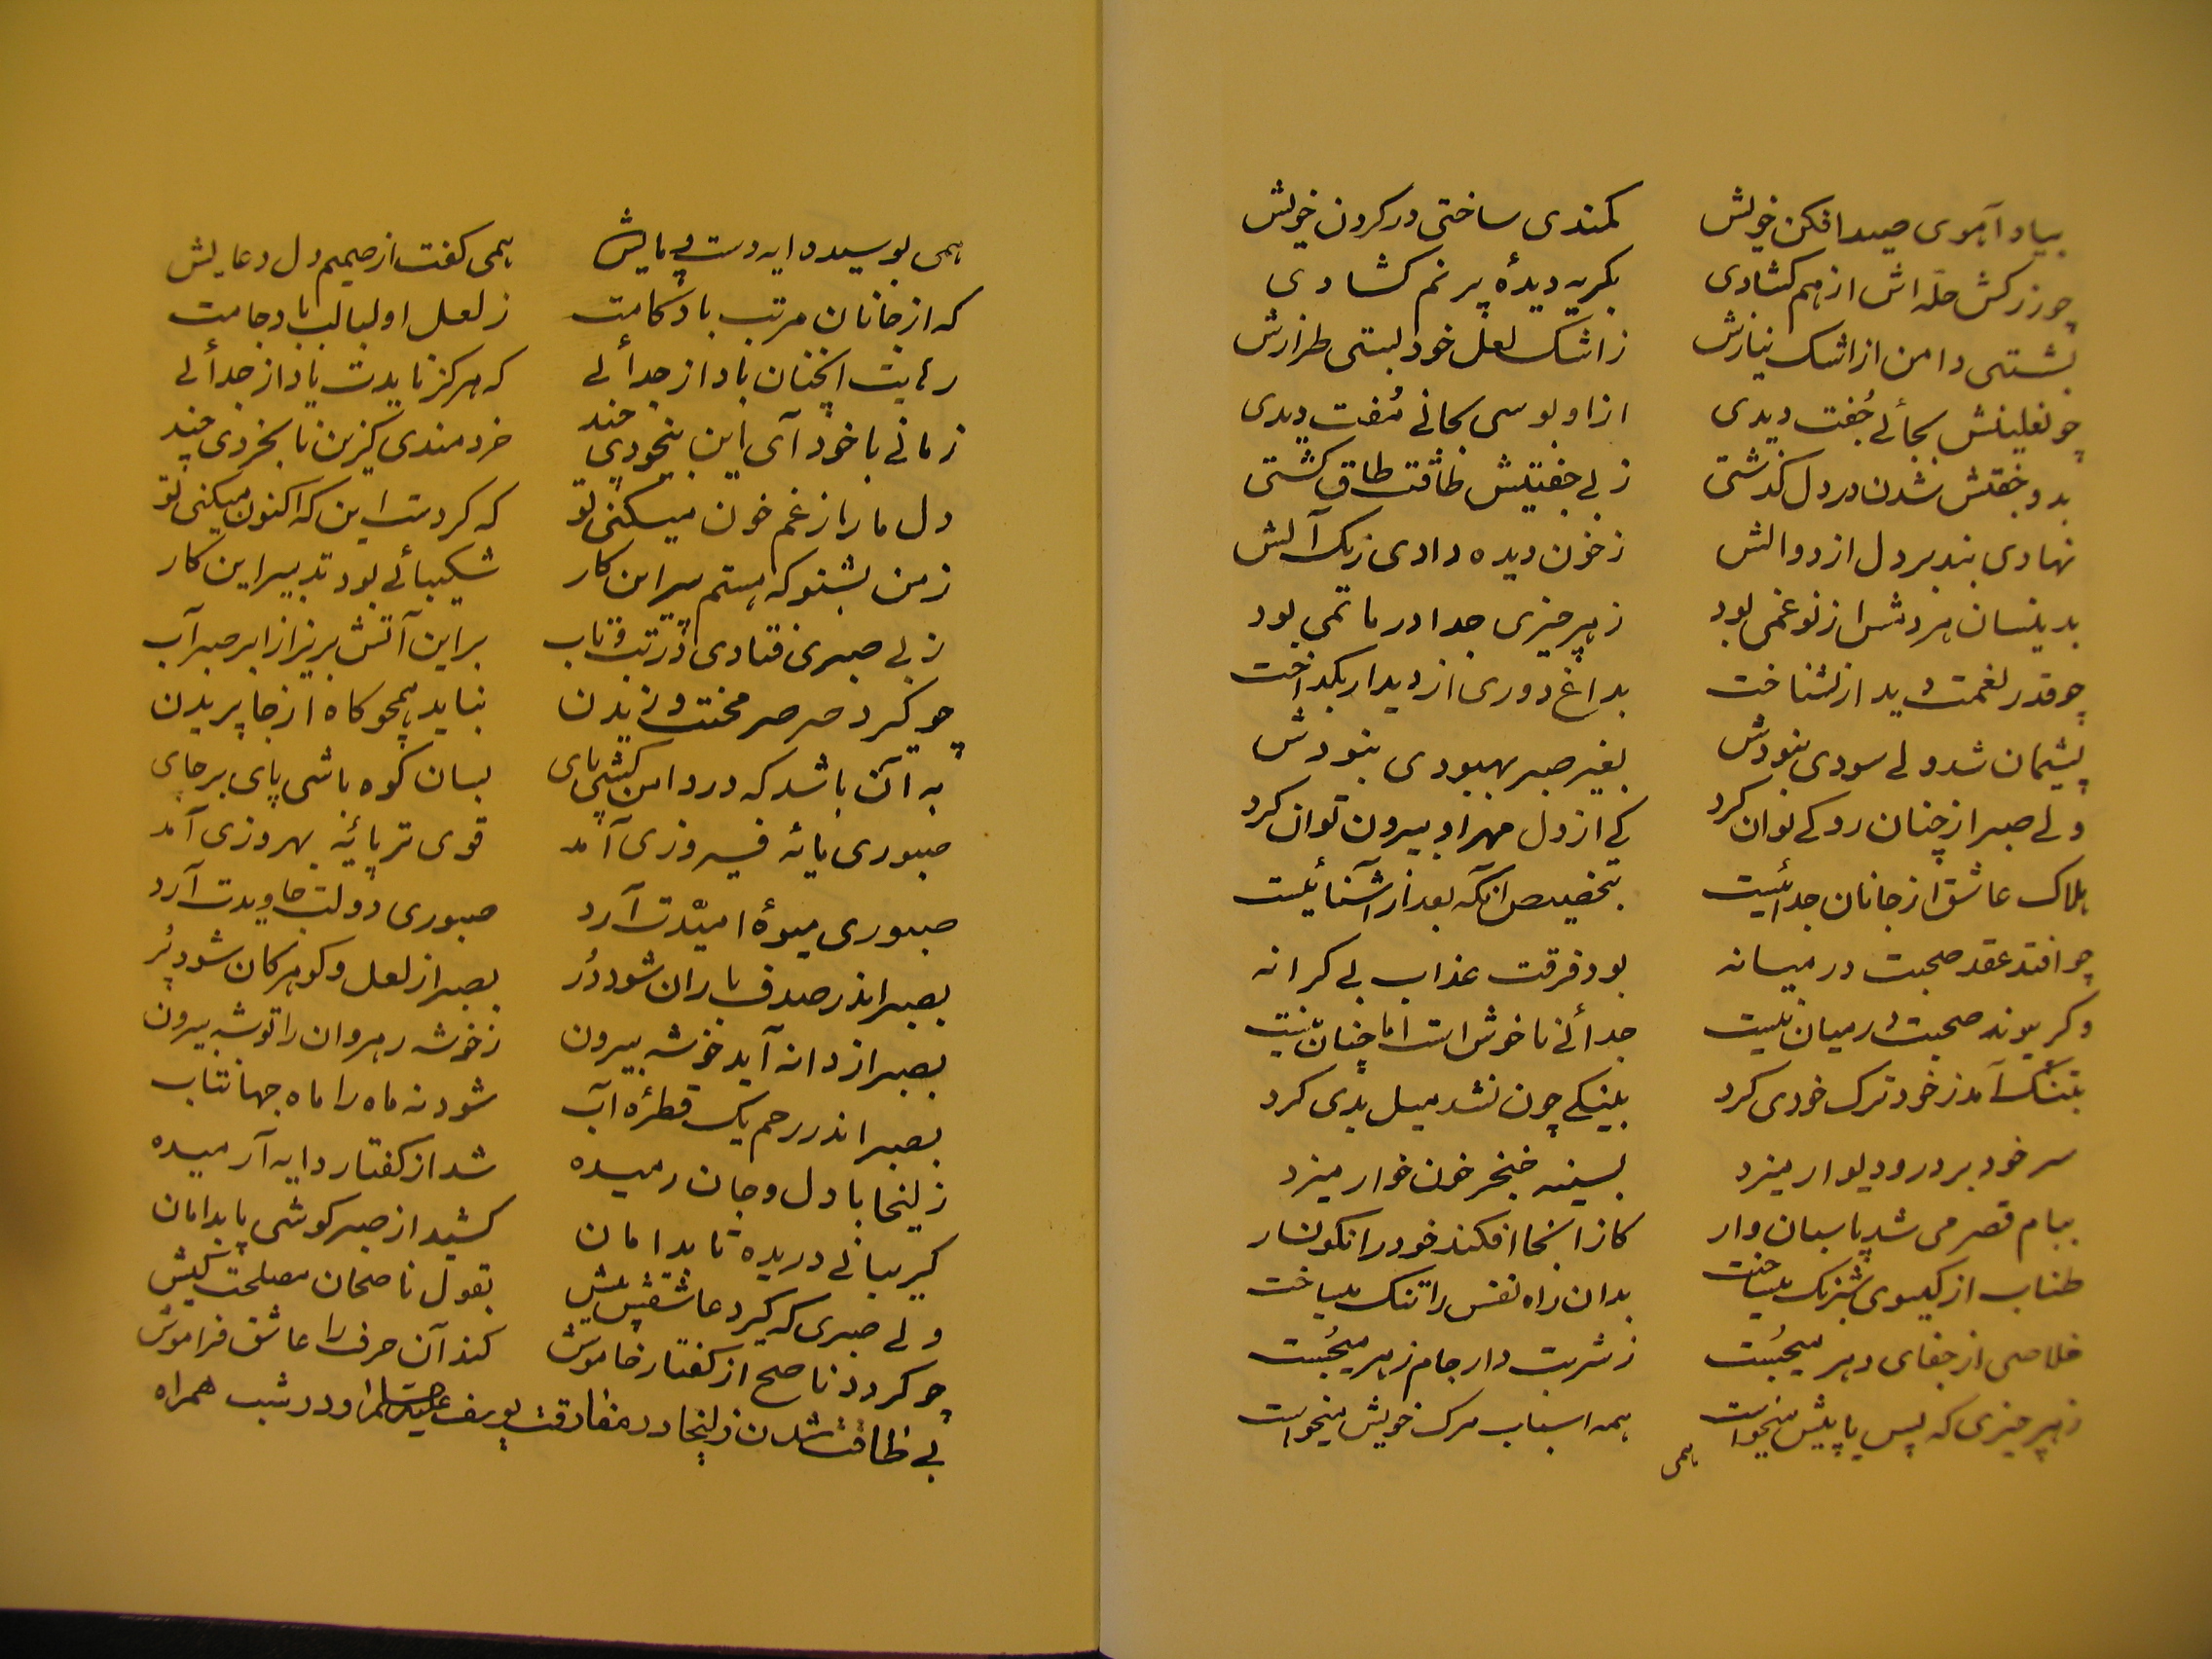 بیاد آهوی صیدافکن خویش کمندی ساختی در کردن خویش
چو زرکش حله اش از هم کشادی بکریه دیدهٔ پر نم کشادی
بشستی دامن از اشک نیازش ز اشک لعل خود بستی طرازش
چو نعلینش بجائے جُفت دیدی ازاو بوسی بجانے مُفت دیدی
بدو جفتش شدن در دل کذشتی ز بے جفتیش طاقت طاق کشتی
نهادی بند بر دل از دوالش ز خون دیده دادی زنک آلش
بدینسان هر دمش از نو غمی بود ز هر چیزی جدا در ماتمی بود
چو قدر نعمت دیدار نشناخت بداغ دوری از دیدار بکداخت
پشیمان شد ولے سودی نبودش بغیر صبر بهبودی نبودش
ولے صبر از چنان رو کے توان کرد کے از دل مهر او بیرون توان کرد
هلاک عاشق از جانان جدائیست بتخصیص آنکه بعد از آشنائیست
چو افتد عقد صحبت در میانه بود فرقت عذاب بے کرانه
وکر پیوند صحبت در میان نیست جدائے ناخوش است اما چنان نیست
بتنک آمد ز خود ترک خودی کرد بلینکے چون نشد میل بدی کرد
سر خود بر در و دیوار میزد بسینه خنجر خون خوار میزد
ببام قصر می شد پاسبان وار کاز انجا افکند خود را نکونسار
طناب از کیسوی شبرنک میساخت بدان راه نفس را تنک میساخت
خلاصی از جفای دهر میجُست ز شربت دار جام زهر میجُست
ز هر چیزی که پس یا پیش میخواست همه اسباب مرک خویش میخواست
همی
همی بوسید دایه دست و پایش همی کفت از صمیم دل دعایش
که از جانان مرتب باد کامت ز لعل او لبالب باد جامت
رهایت آنچنان باد از جدائے که هرکز نایدت یاد از جدائے
زمانے با خود آی این بیخودی چند خردمندی کزین نابخردی چند
دل ما را ز غم خون میکنی تو که کردست این که اکنون میکنی تو
ز من بشنو که هستم پیر این کار شکیبائے بود تدبیر این کار
ز بے صبری فتادی در تب و تاب بر این آتش بریز از ابر صبر آب
چو کیرد صرصر محنت وزیدن نباید همچو کاه از جا پریدن
به آن باشد که در دامن کشی پای بسان کوه باشی پای بر جای
صبوری پایهٔ فیروزی آمد قوی تر پایهٔ بهروزی آمد
صبوری میوهٔ امیدت آرد صبوری دولت جاویدت آرد
بصبر اندر صدف باران شود دُر بصبر از لعل و کوهر کان شود پُر
بصبر از دانه آید خوشه بیرون ز خوشه رهروان را توشه بیرون
بصبر اندر رحم یک قطرهٔ آب شود نه ماه را ماه جهانتاب
زلیخا با دل و جان رمیده شد از کفتار دایه آرمیده
کریبانے دریده تا بدامان کشید از صبر کوشی پا بدامان
ولے صبری که کیرد عاشق پیش بقول ناصحان مصلحت کیش
چو کردد ناصح از کفتار خاموش کند آن حرف را عاشق فراموش
بے طاقت شدن زلیخا در مفارقت یوسف علیه السلام او در شب همراه